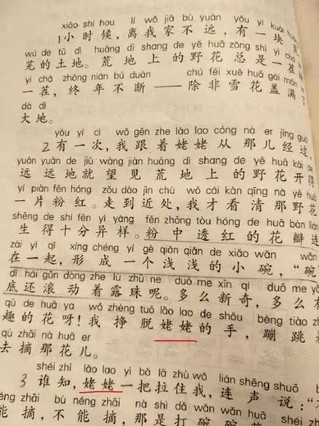 xiǎo shí hou lí wǒ jiā bù yuǎn yǒu yí kuài
1 小时候，离我家不远，有一块
wú de tǔ dì huāng dì shang de yě huā zǒng shì yì
芜的土地。荒地上的野花总是一茬
yì chá zhōng nián bú duàn chú fēi xuě huā gài mǎn
一茬，终年不断——除非雪花盖满了
dà dì
大地。
yǒu yí cì wǒ gēn zhe lǎo lao cóng nà er jīng guò
2 有一次，我跟着姥姥从那儿经过
yuǎn yuǎn de jiù wàng jiàn huāng dì shang de yě huā kāi
远远地就望见荒地上的野花开得
yí piàn fěn hóng zǒu dào jìn chù wǒ cái kàn qīng nà yě huā
一片粉红。走到近处，我才看清那野花
shēng de shí fēn yì yàng fěn zhōng tòu hóng de huā bàn
生得十分异样。粉中透红的花瓣连
zài yì qǐ xíng chéng yí gè qiǎn qiǎn de xiǎo wǎn wǎn
在一起，形成一个浅浅的小碗，“碗”
dǐ hái gǔn dòng zhe lù zhū ne duō me xīn qí duō me
底还滚动着露珠呢。多么新奇，多么有
qù de huā ya wǒ zhèng tuō lǎo lao de shǒu bèng tiào
趣的花呀！我挣脱姥姥的手，蹦跳着
qù zhāi nà huā er
去摘那花儿。
shéi zhī lǎo lao yì bǎ lā zhù wǒ lián shēng shuō
3 谁知，姥姥一把拉住我，连声说：“
zhāi bù néng zhāi nà shì dǎ wǎn wǎn
摘，不能摘，那是打碗碗花